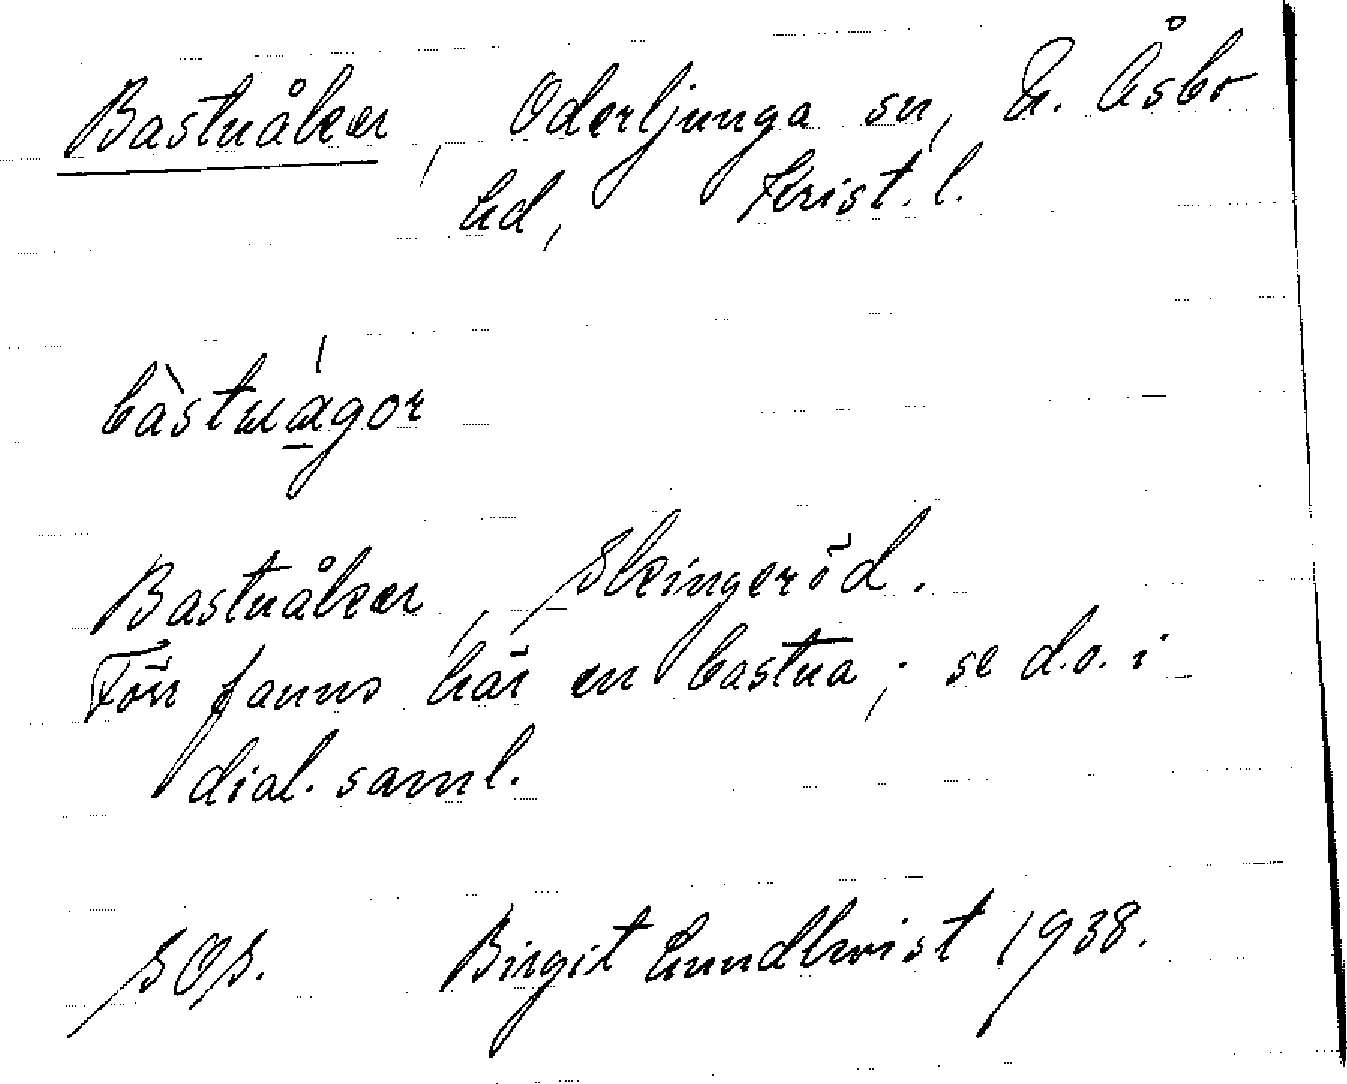 Bastuåker, Oderljunga sn, N. Åsbo
hd, Krist. l.
bàstuágor
Bastuåker, Skingeröd.
Förr fanns här en bastua; se d.o. i
dial. saml.
SOS. Birgit Lundkvist 1938.